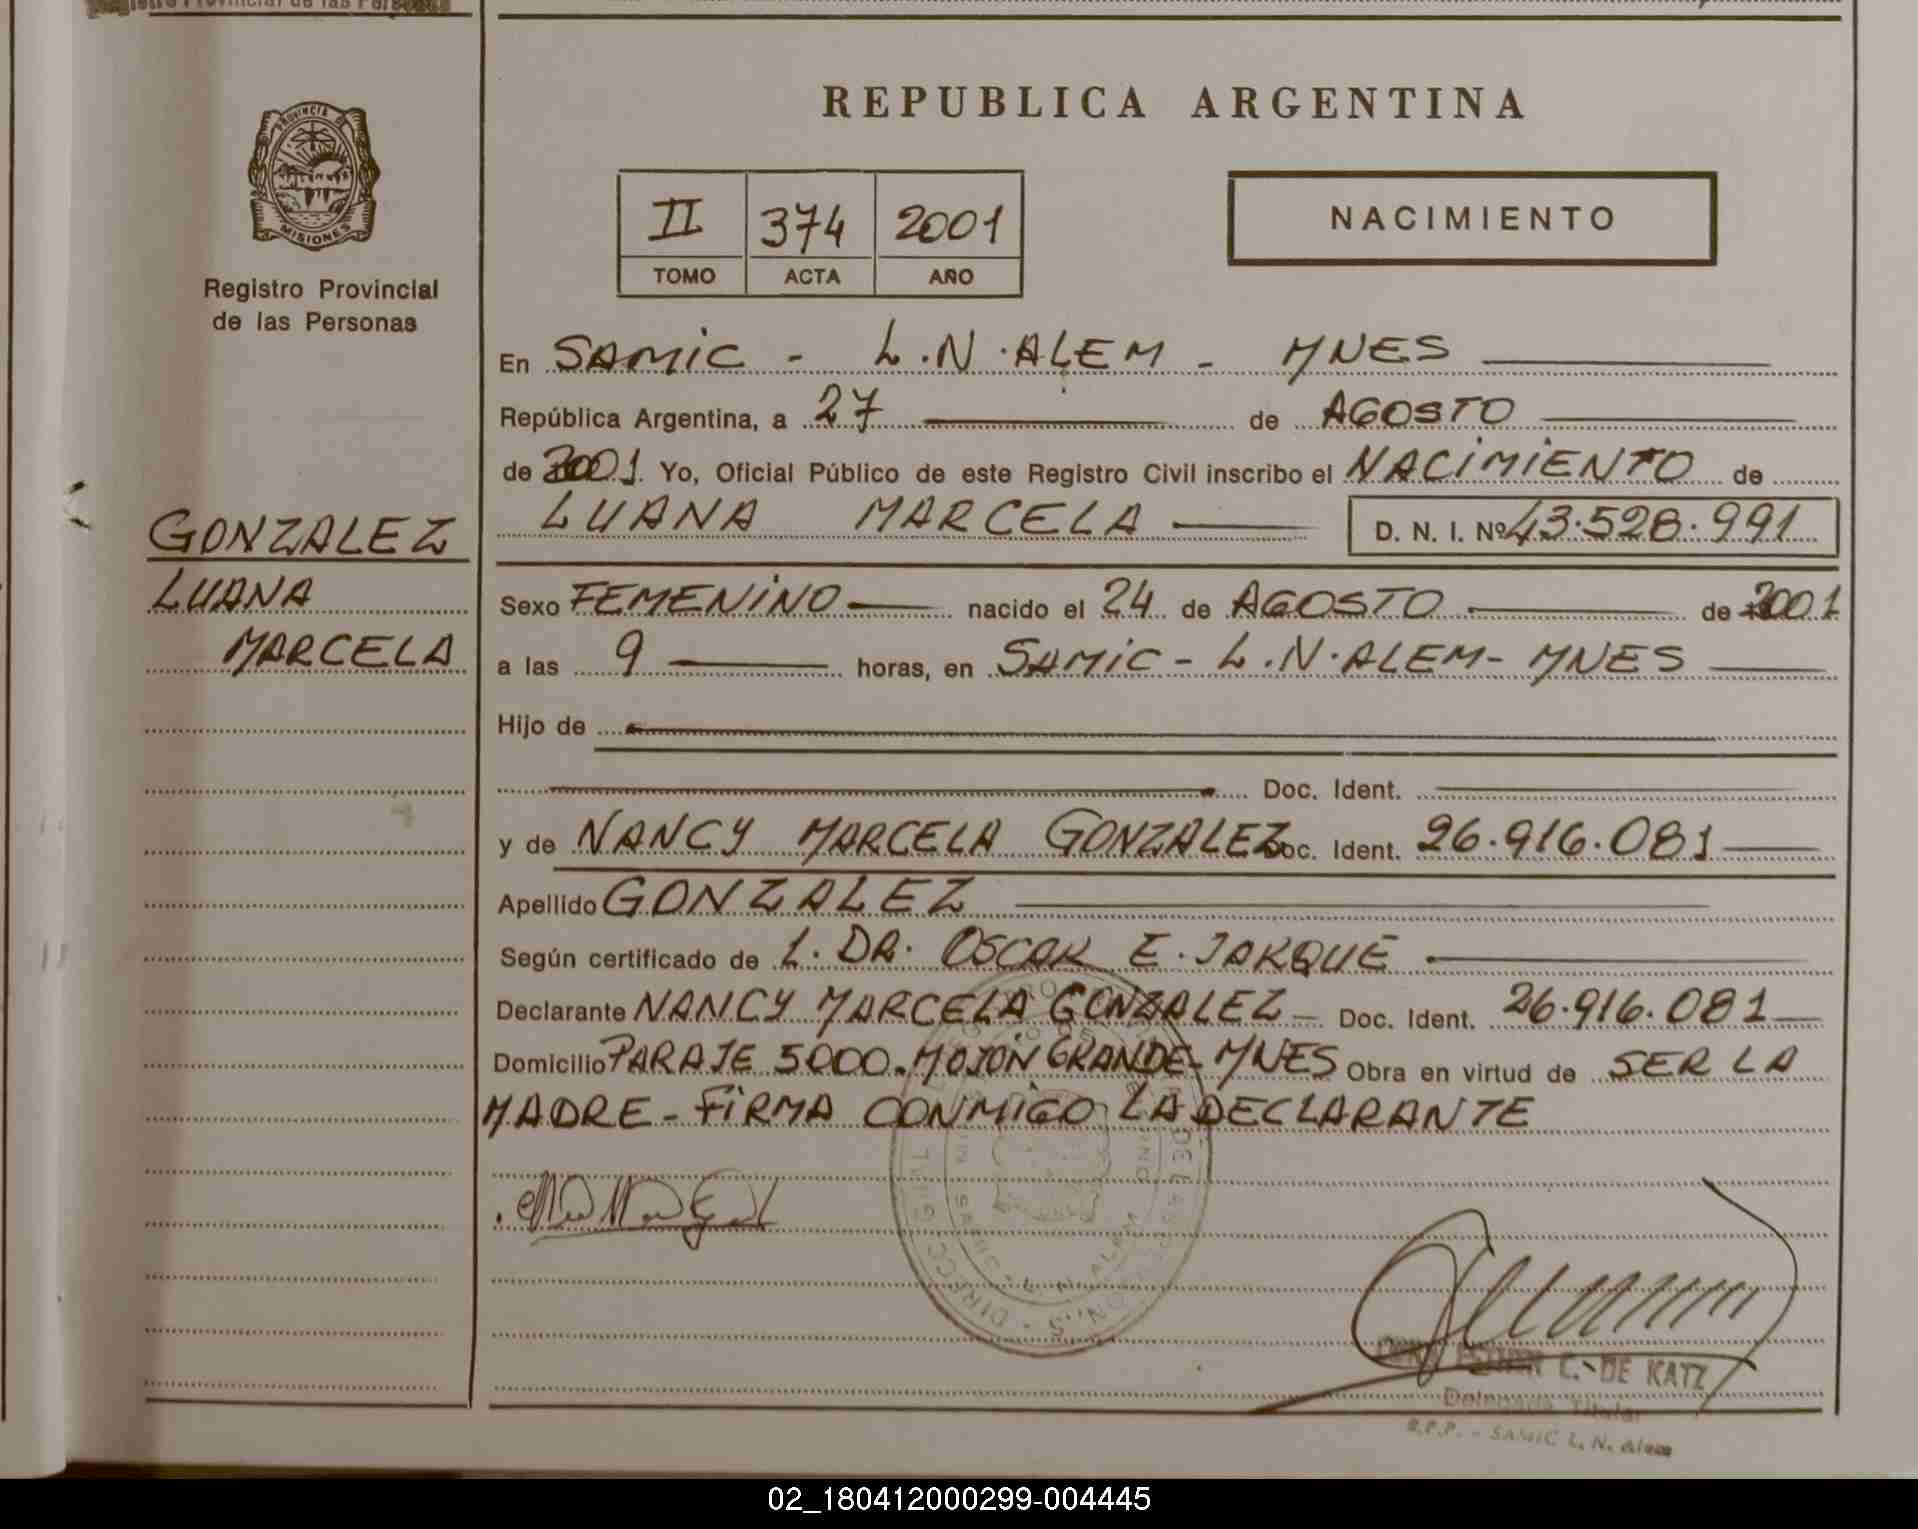 Registro Provincial de las Personas
PROVINCIA DE
MISIONES
Registro Provincial
de las Personas
GONZALEZ
LUANA
MARCELA
REPUBLICA ARGENTINA
II 374 2001
TOMO ACTA AÑO
NACIMIENTO
En SAMIC - L.N. ALEM - MNES
República Argentina, a 27 de AGOSTO
de 2001. Yo, Oficial Público de este Registro Civil inscribo el NACIMIENTO de
LUANA MARCELA D. N. I. Nº 43.528.991
Sexo FEMENINO nacido el 24 de AGOSTO de 2001
a las 9 horas, en SAMIC - L.N. ALEM - MNES
Hijo de
Doc. Ident.
y de NANCY MARCELA GONZALEZ Doc. Ident. 26.916.081
Apellido GONZALEZ
Según certificado de L. DR. OSCAR E. JARQUE
Declarante NANCY MARCELA GONZALEZ - Doc. Ident. 26.916.081
Domicilio PARAJE 5000 - MOJON GRANDE - MNES Obra en virtud de SER LA
MADRE - FIRMA CONMIGO LA DECLARANTE
C. DE KATZ
Delegada Titular
R.P.P. - SAMIC L. N. Alem
02_180412000299-004445